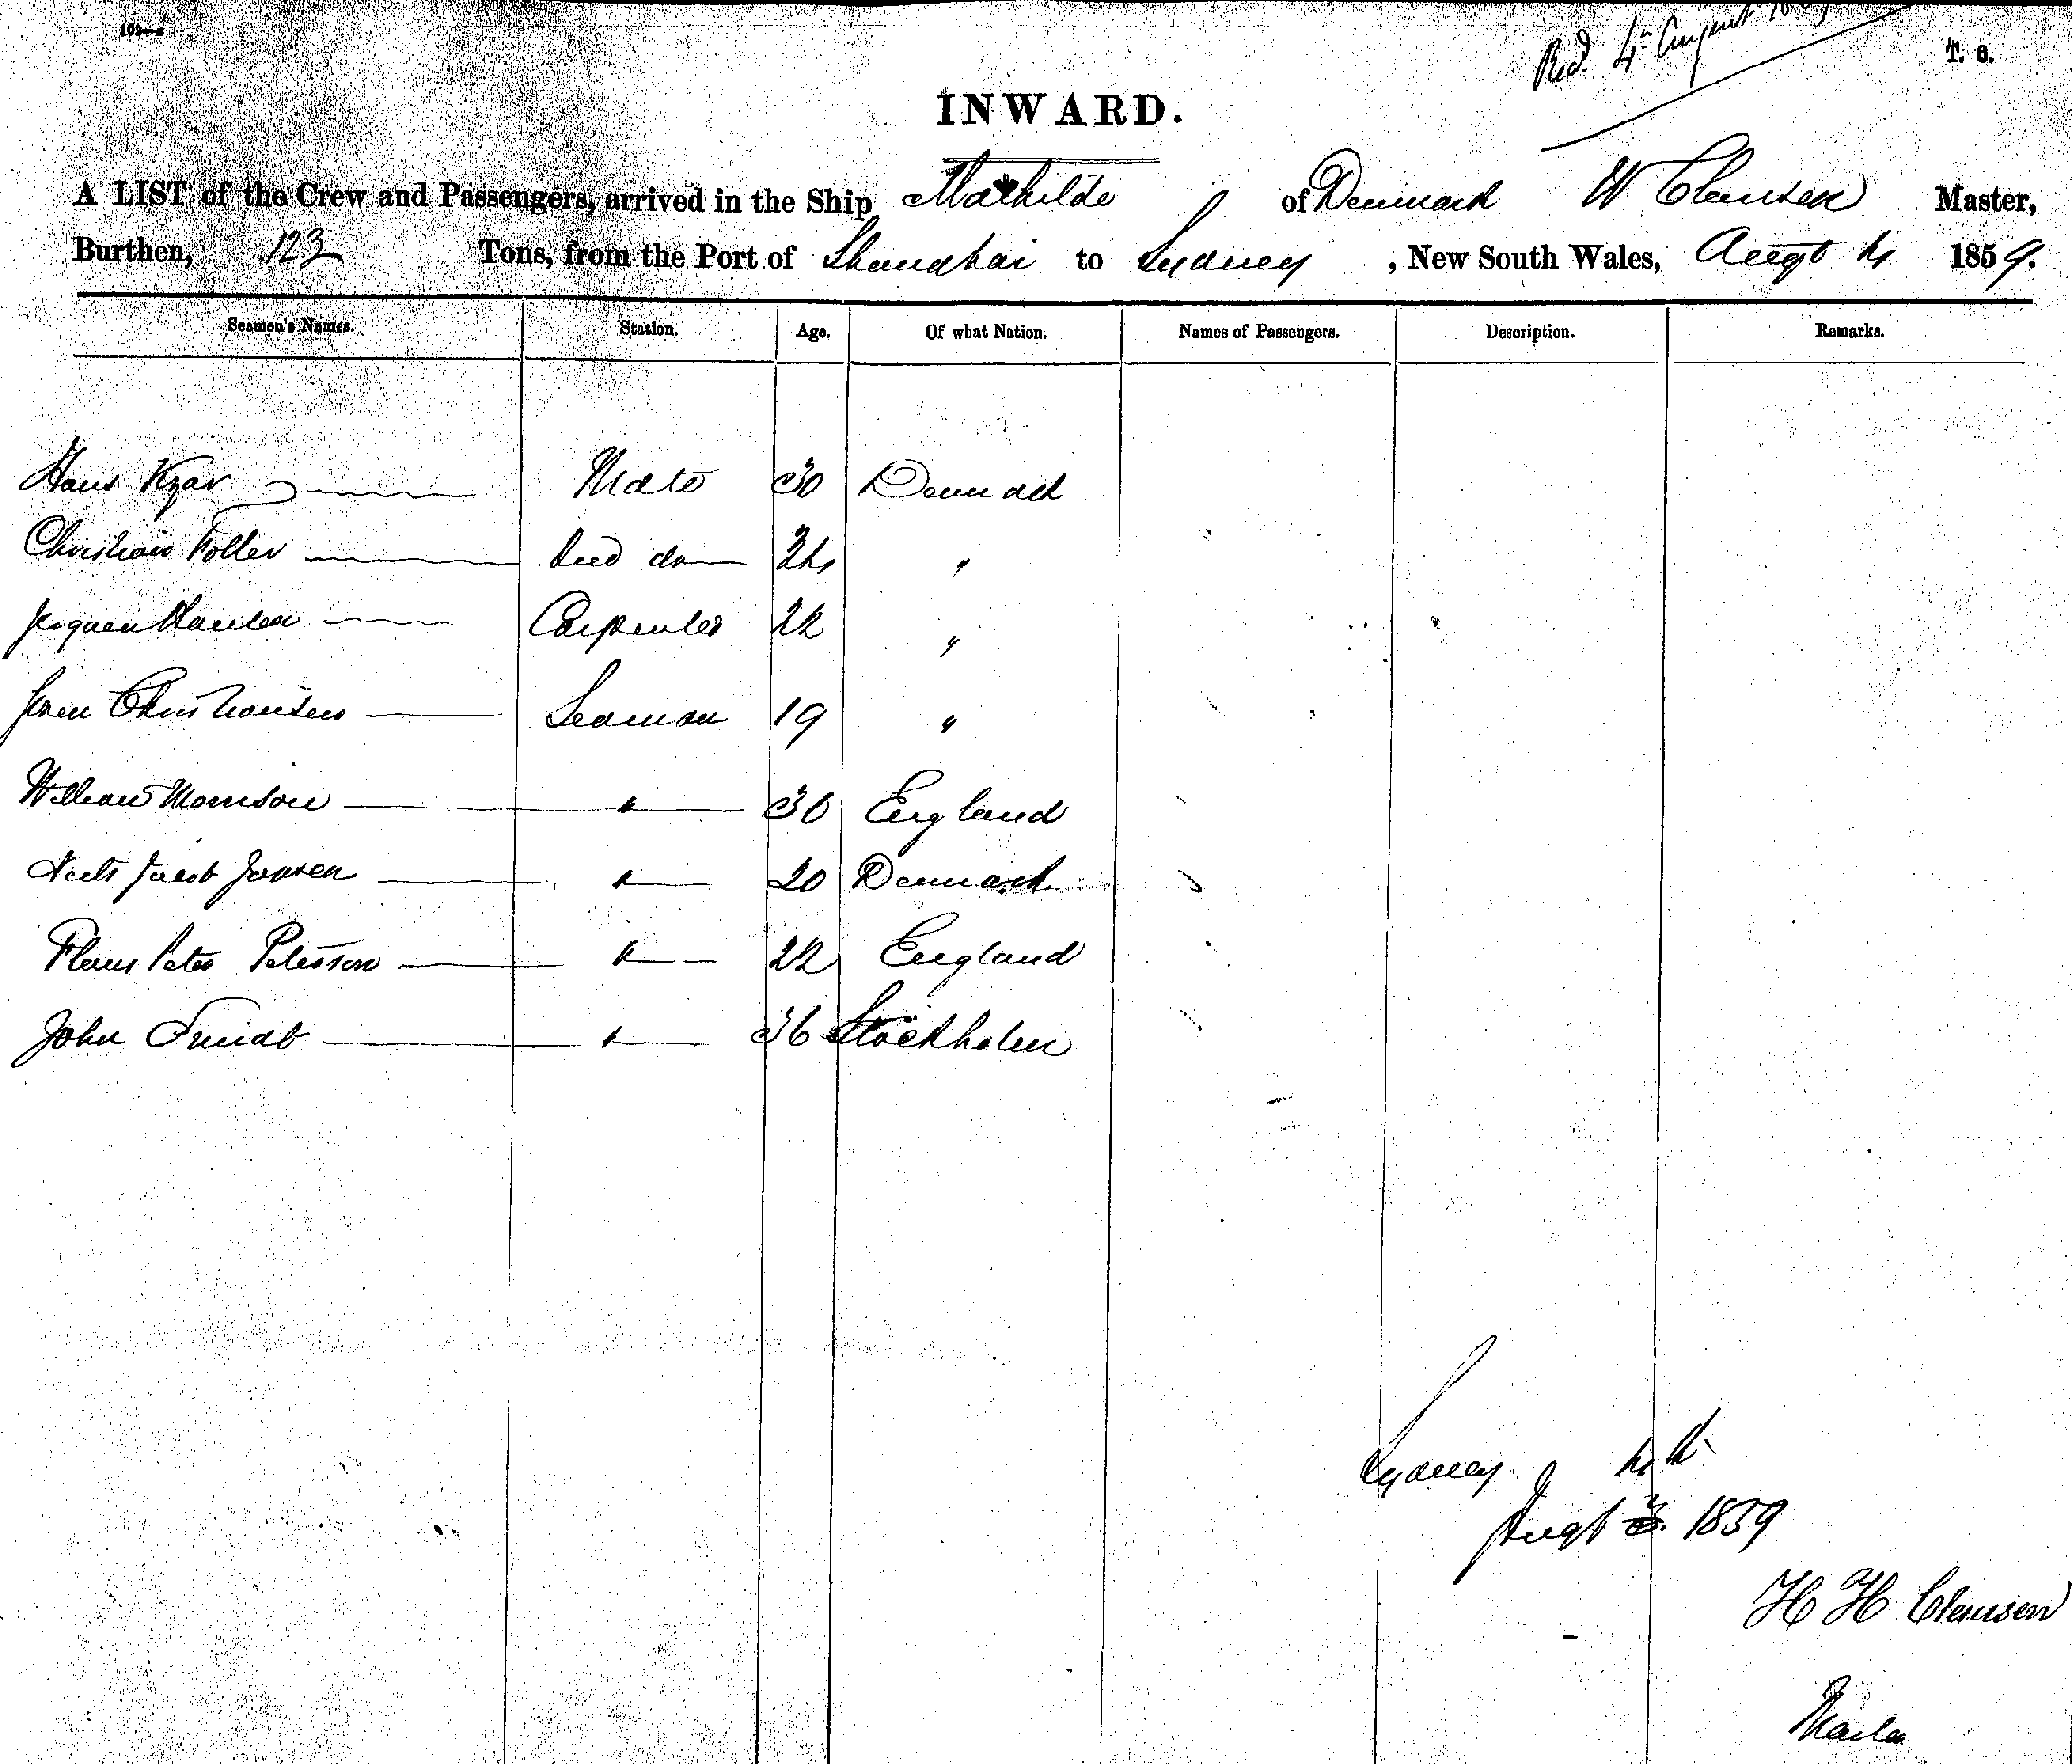 Recd. 4th August
T. 6.
INWARD.
A LIST of the Crew and Passengers, arrived in the Ship Mathilde of Denmark W Clausen Master,
Burthen, 123 Tons, from the Port of Shanghai to Sydney, New South Wales, Augt 4 1859.
Seamen's Names. Station. Age. Of what Nation. Names of Passengers. Description. Remarks.
Hans Mate 30 Denmark
Christian Foller do 24 "
Hansen Carpenter 22 "
Christiansen Seaman 19 "
William Morrison " 36 England
Niels Jacob Jansen " 20 Denmark
Peter Peterson " 22 England
John Smidt " 36 Stockholm
Sydney 4th
Augt 3. 1859
H H Clausen
Master